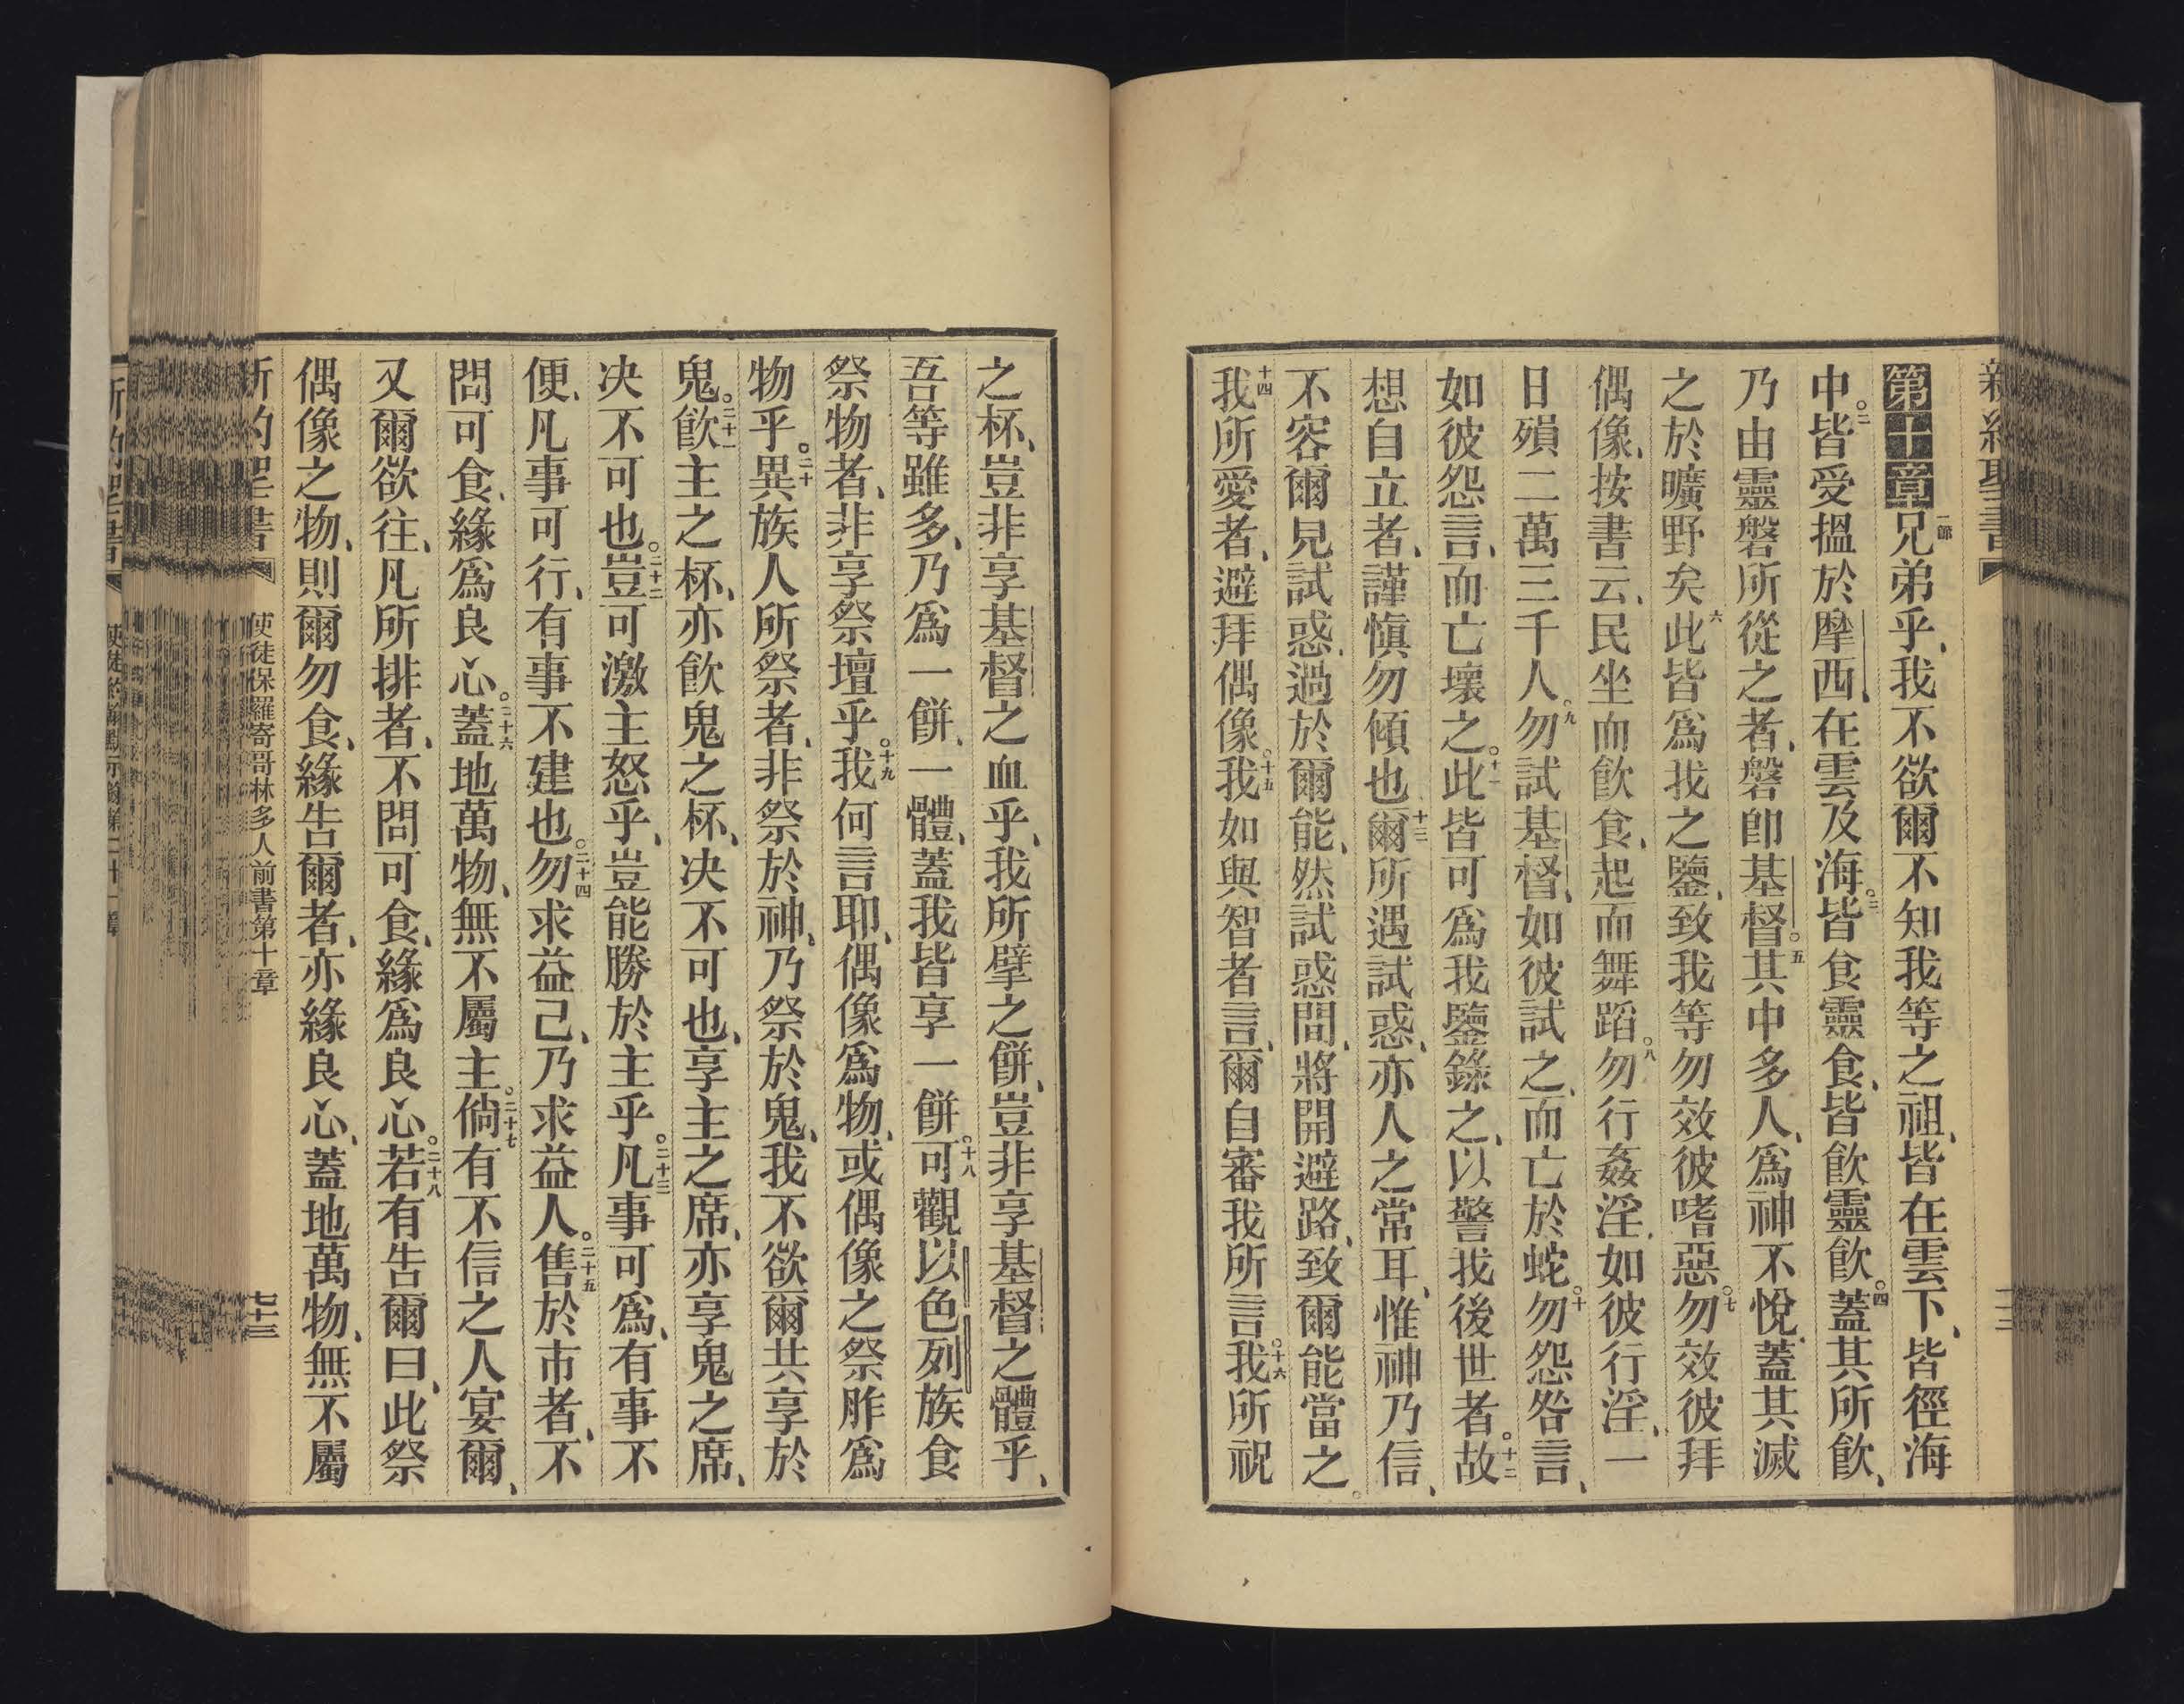 新約聖書
第十章一節兄弟乎、我不欲爾不知我等之祖、皆在雲下、皆徑海
中。二皆受搵於摩西、在雲及海。三皆食靈食、皆飲靈飲。四蓋其所飲、
乃由靈磐所從之者、磐卽基督。五其中多人、爲神不悅、蓋其滅
之於曠野矣六此皆爲我之鑒、致我等勿效彼嗜惡。七勿效彼拜
偶像、按書云、民坐而飲食、起而舞蹈。八勿行姦淫、如彼行淫、一
日殞二萬三千人。九勿試基督、如彼試之、而亡於蛇。十勿怨咎言、
如彼怨言、而亡壞之。十一此皆可爲我鑒錄之、以警我後世者。十二故
想自立者、謹愼勿傾也十三爾所遇試惑、亦人之常耳、惟神乃信、
不容爾見試惑、過於爾能、然試惑間、將開避路、致爾能當之。
十四我所愛者、避拜偶像。十五我如與智者言、爾自審我所言。十六我所祝
之杯、豈非享基督之血乎、我所擘之餅、豈非享基督之體乎、
吾等雖多、乃爲一餅、一體、蓋我皆享一餅。十八可觀以色列族食
祭物者、非享祭壇乎。十九我何言耶、偶像爲物、或偶像之祭胙爲
物乎。二十異族人所祭者、非祭於神、乃祭於鬼、我不欲爾共享於
鬼。二十一飮主之杯、亦飮鬼之杯、决不可也、享主之席、亦享鬼之席、
决不可也。二十二豈可激主怒乎、豈能勝於主乎。二十三凡事可爲、有事不
便、凡事可行、有事不建也。二十四勿求益己、乃求益人。二十五售於市者、不
問可食、緣爲良心。二十六蓋地萬物、無不屬主。二十七倘有不信之人宴爾、
又爾欲往、凡所排者、不問可食、緣爲良心。二十八若有告爾曰、此祭
偶像之物、則爾勿食、緣告爾者、亦緣良心、蓋地萬物、無不屬
新約聖書 使徒保羅寄哥林多人前書第十章 七十三